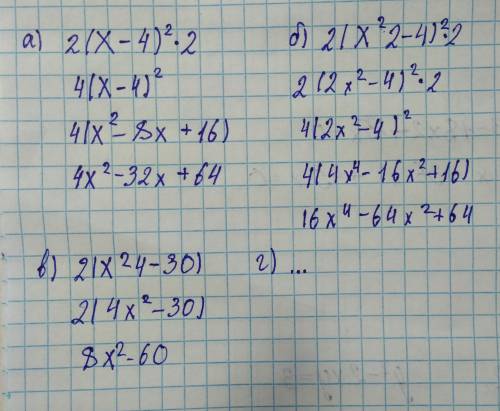 а) 2(x-4)²·2
4(x-4)²
4(x²-8x+16)
4x²-32x+64
б) 2(x²2-4)²·2
2(2x²-4)²·2
4(2x²-4)²
4(4x⁴-16x²+16)
16x⁴-64x²+64
в) 2(x²4-30)
2(4x²-30)
8x²-60
г) ...